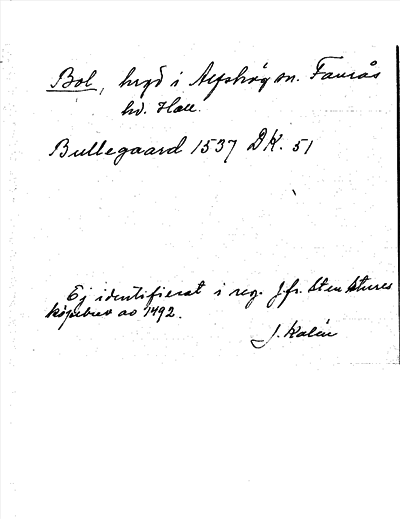 Bol, hvgd i Alfshög sn. Faurås
hd. Hall.
Bullegaard 1537 DK. 51
Ej identifierat i reg. Jfr. Sten Stures
köpebrev av 1492.
J. Kalén